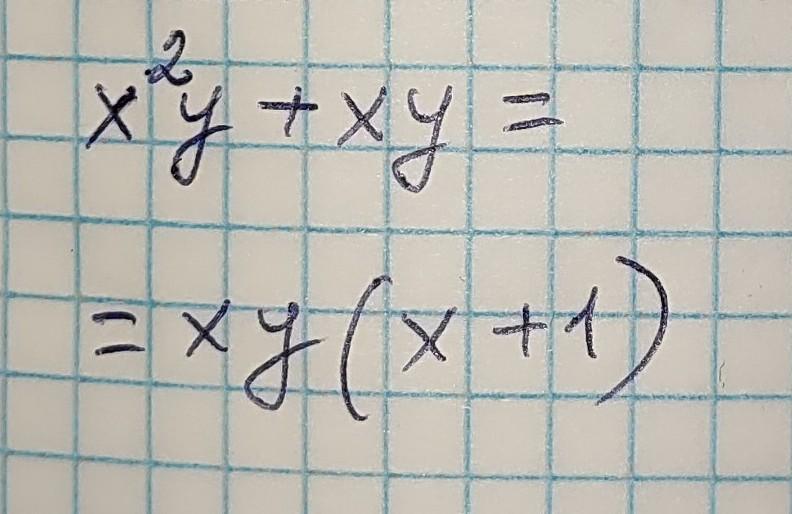 x²y + xy =
= xy(x + 1)